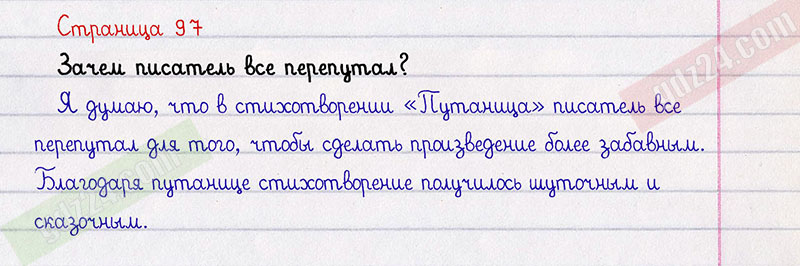 Страница 97
Зачем писатель все перепутал?
Я думаю, что в стихотворении «Путаница» писатель все
перепутал для того, чтобы сделать произведение более забавным.
Благодаря путанице стихотворение получилось шуточным и
сказочным.
gdz24.com
gdz24.com